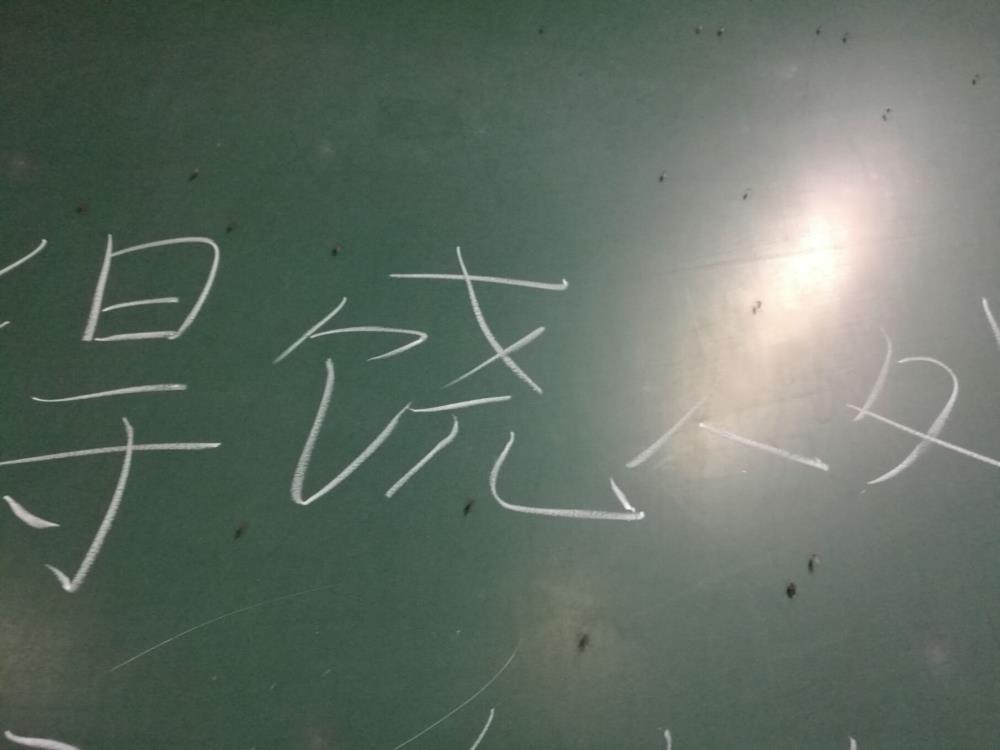 得饶人处